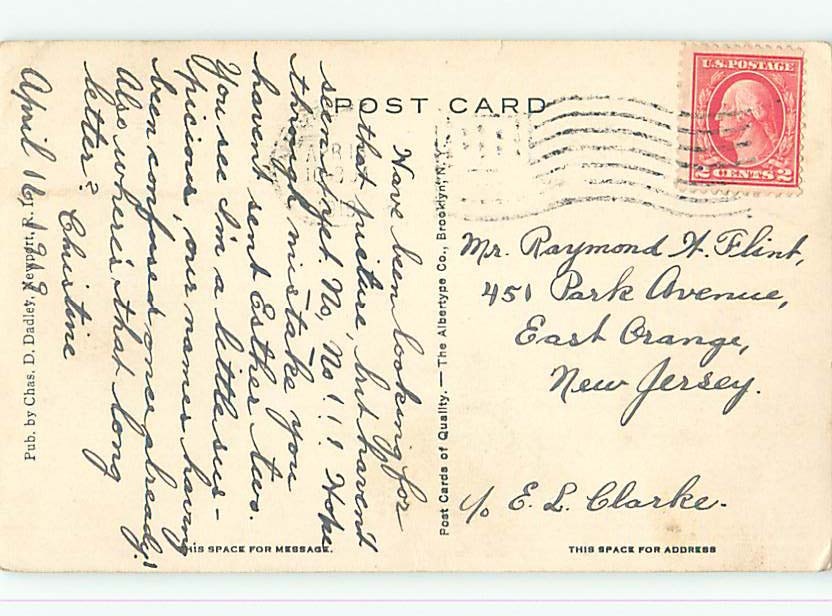 POST CARD
U.S. POSTAGE
2 CENTS 2
Have been looking for
that picture, but haven't
seen it yet. No, No!!! Hope
through mistake you
havent sent Esther two.
You see I'm a little sus-
picious, our names having
been confused once already!
Also where's that long
letter?
Christine
April 16, 1919
Pub. by Chas. D. Dadley, Newport, R. I.
Post Cards of Quality. — The Albertype Co., Brooklyn, N. Y.
Mr. Raymond H. Flint,
451 Park Avenue,
East Orange,
New Jersey.
c/o E. L. Clarke.
THIS SPACE FOR MESSAGE.
THIS SPACE FOR ADDRESS